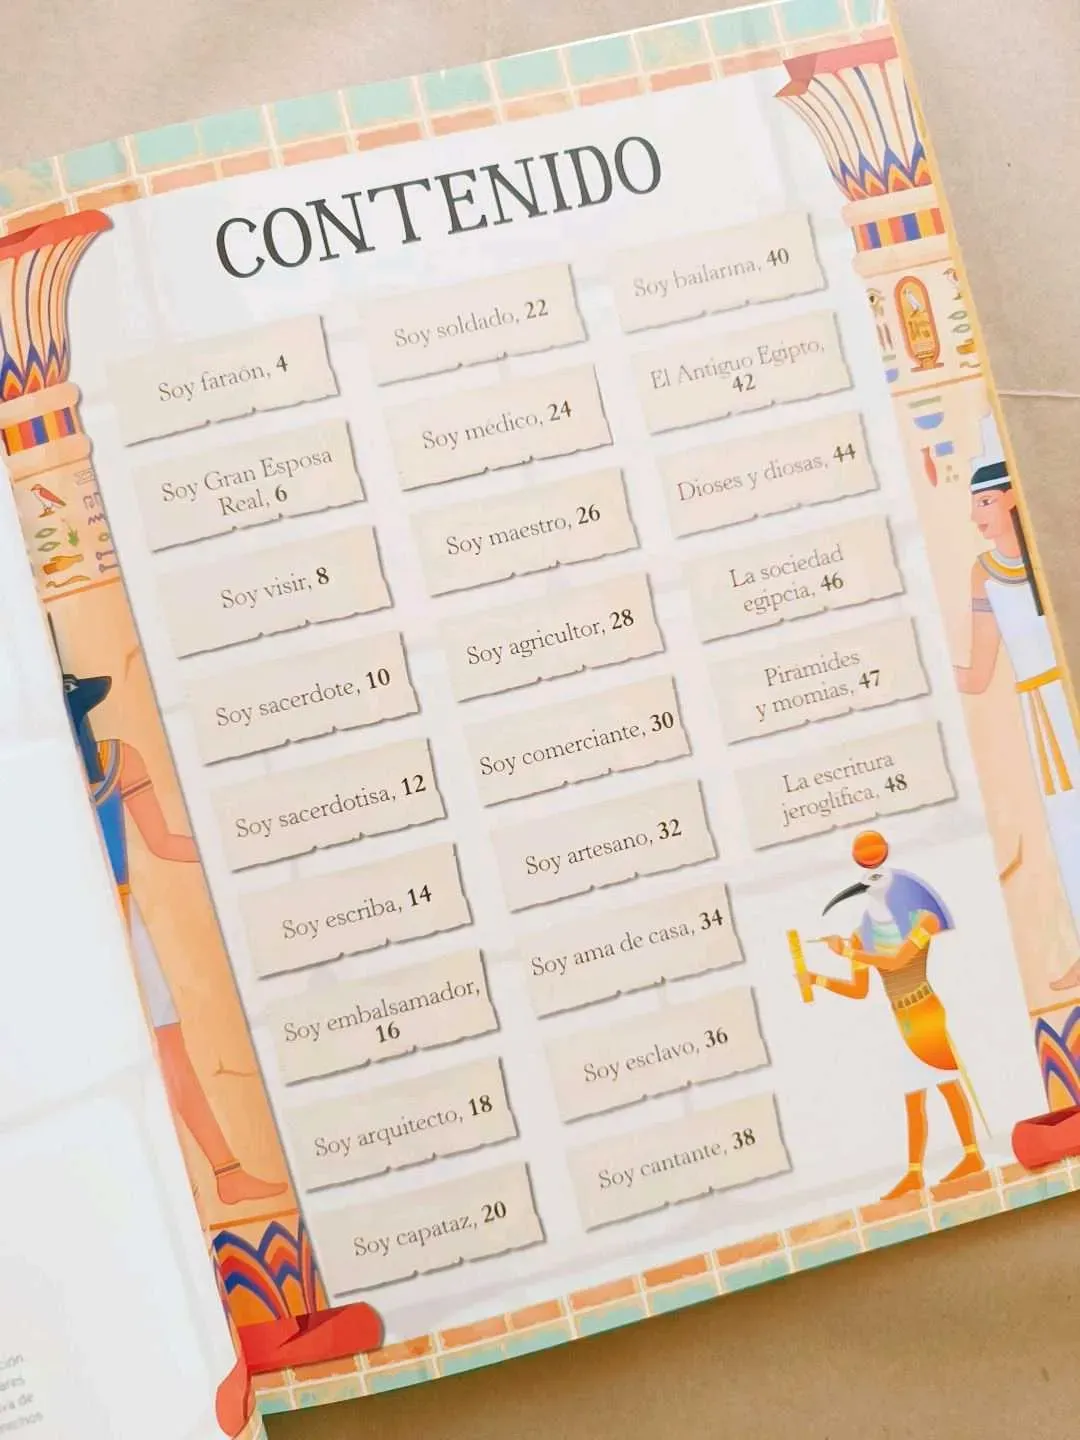 CONTENIDO
Soy faraón, 4
Soy Gran Esposa
Real, 6
Soy visir, 8
Soy sacerdote, 10
Soy sacerdotisa, 12
Soy escriba, 14
Soy embalsamador,
16
Soy arquitecto, 18
Soy capataz, 20
Soy soldado, 22
Soy médico, 24
Soy maestro, 26
Soy agricultor, 28
Soy comerciante, 30
Soy artesano, 32
Soy ama de casa, 34
Soy esclavo, 36
Soy cantante, 38
Soy bailarina, 40
El Antiguo Egipto,
42
Dioses y diosas, 44
La sociedad
egipcia, 46
Pirámides
y momias, 47
La escritura
jeroglífica, 48